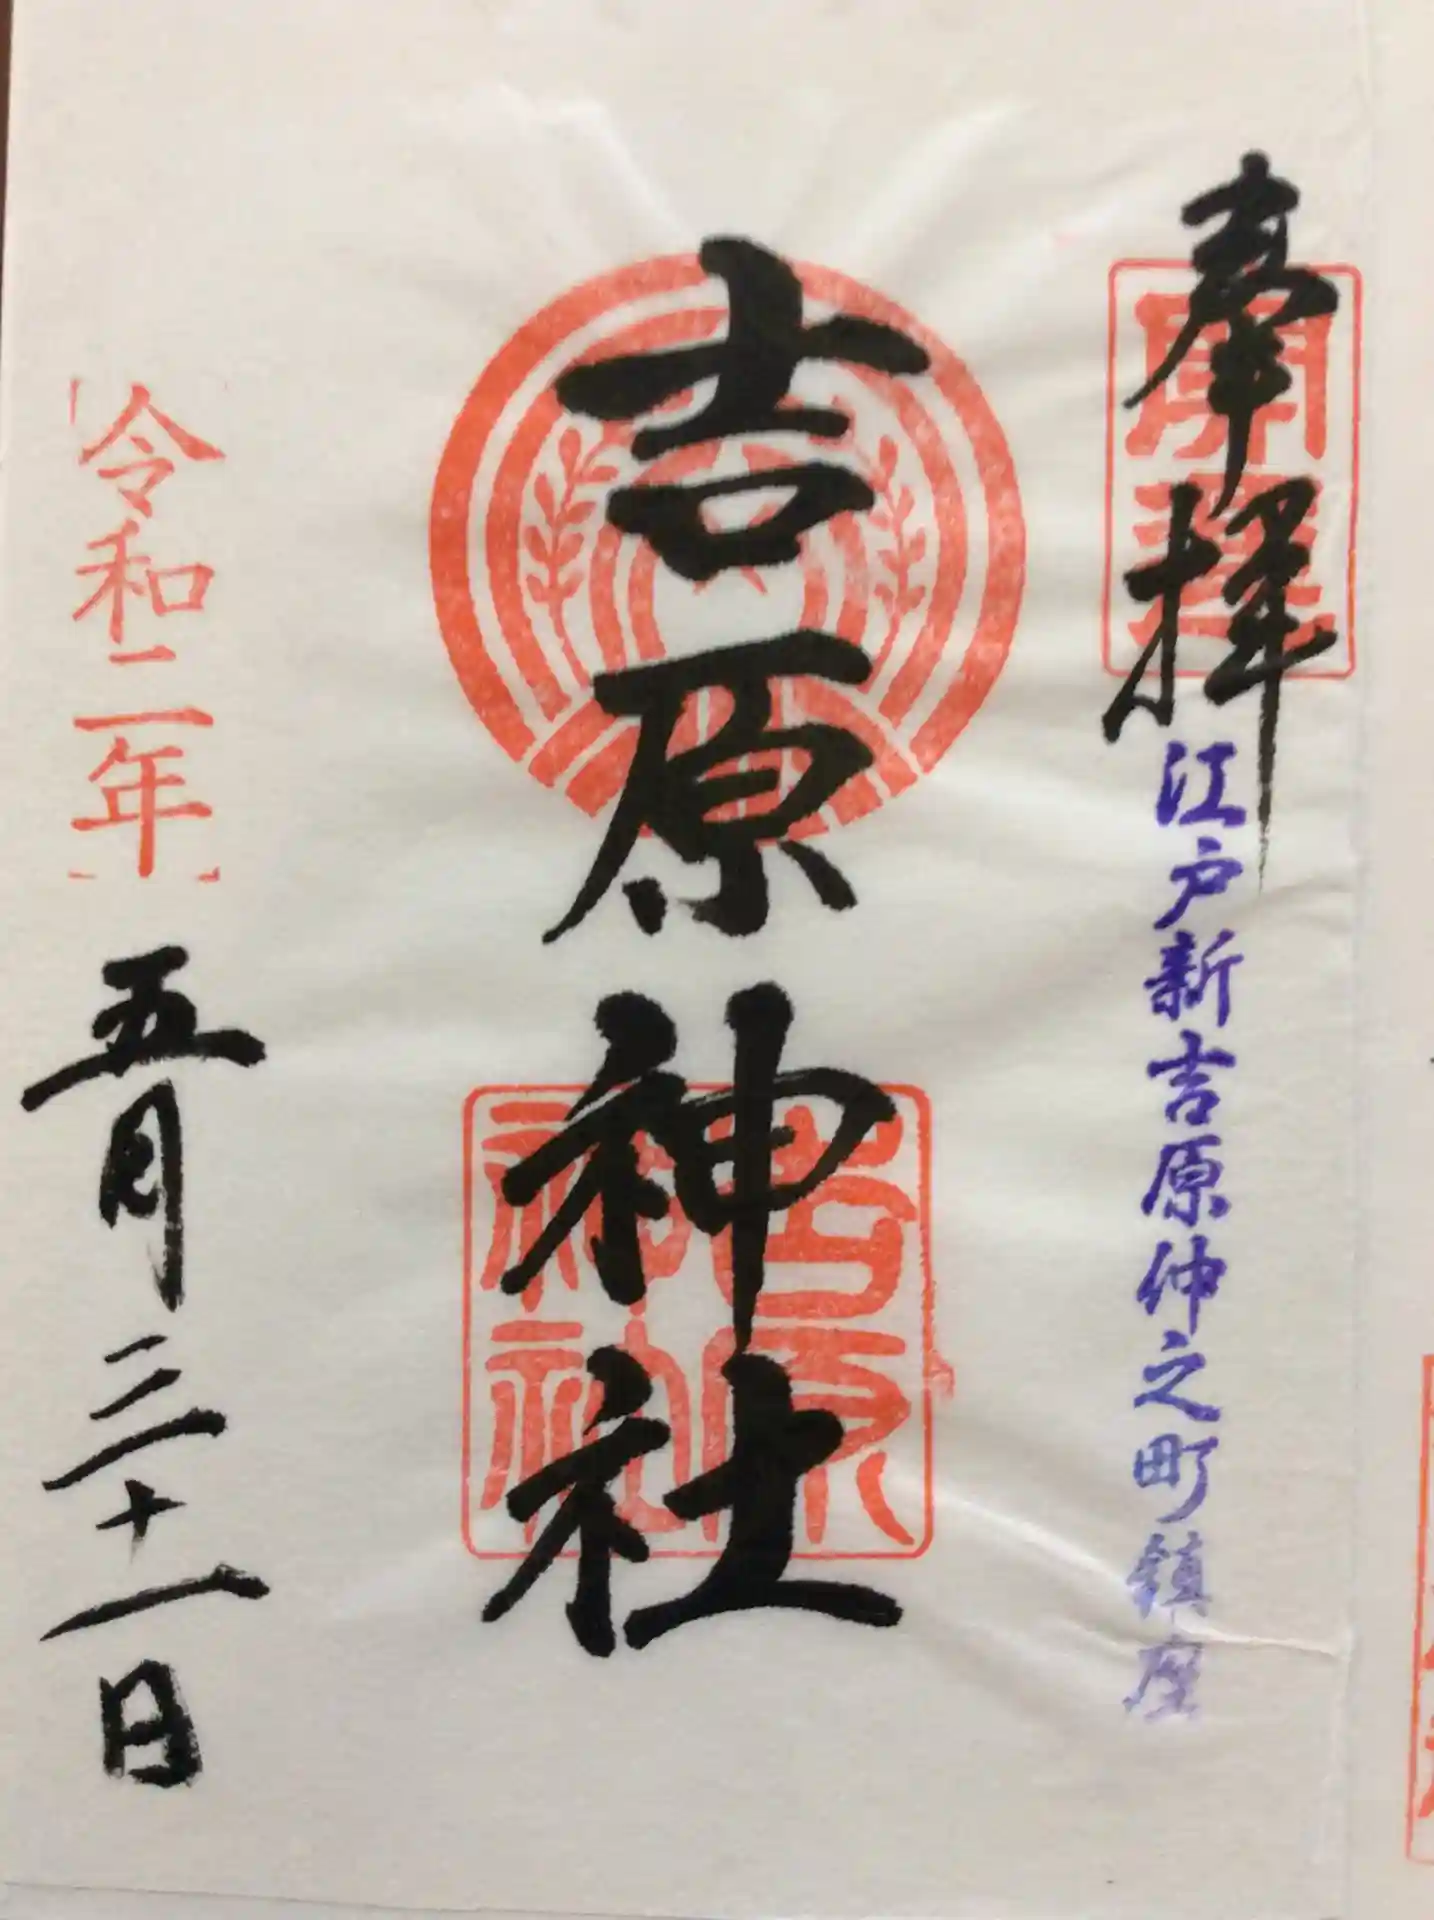 奉拝
開運
江戸新吉原仲之町鎮座
吉原神社
吉原
神社
令和二年
五月三十一日